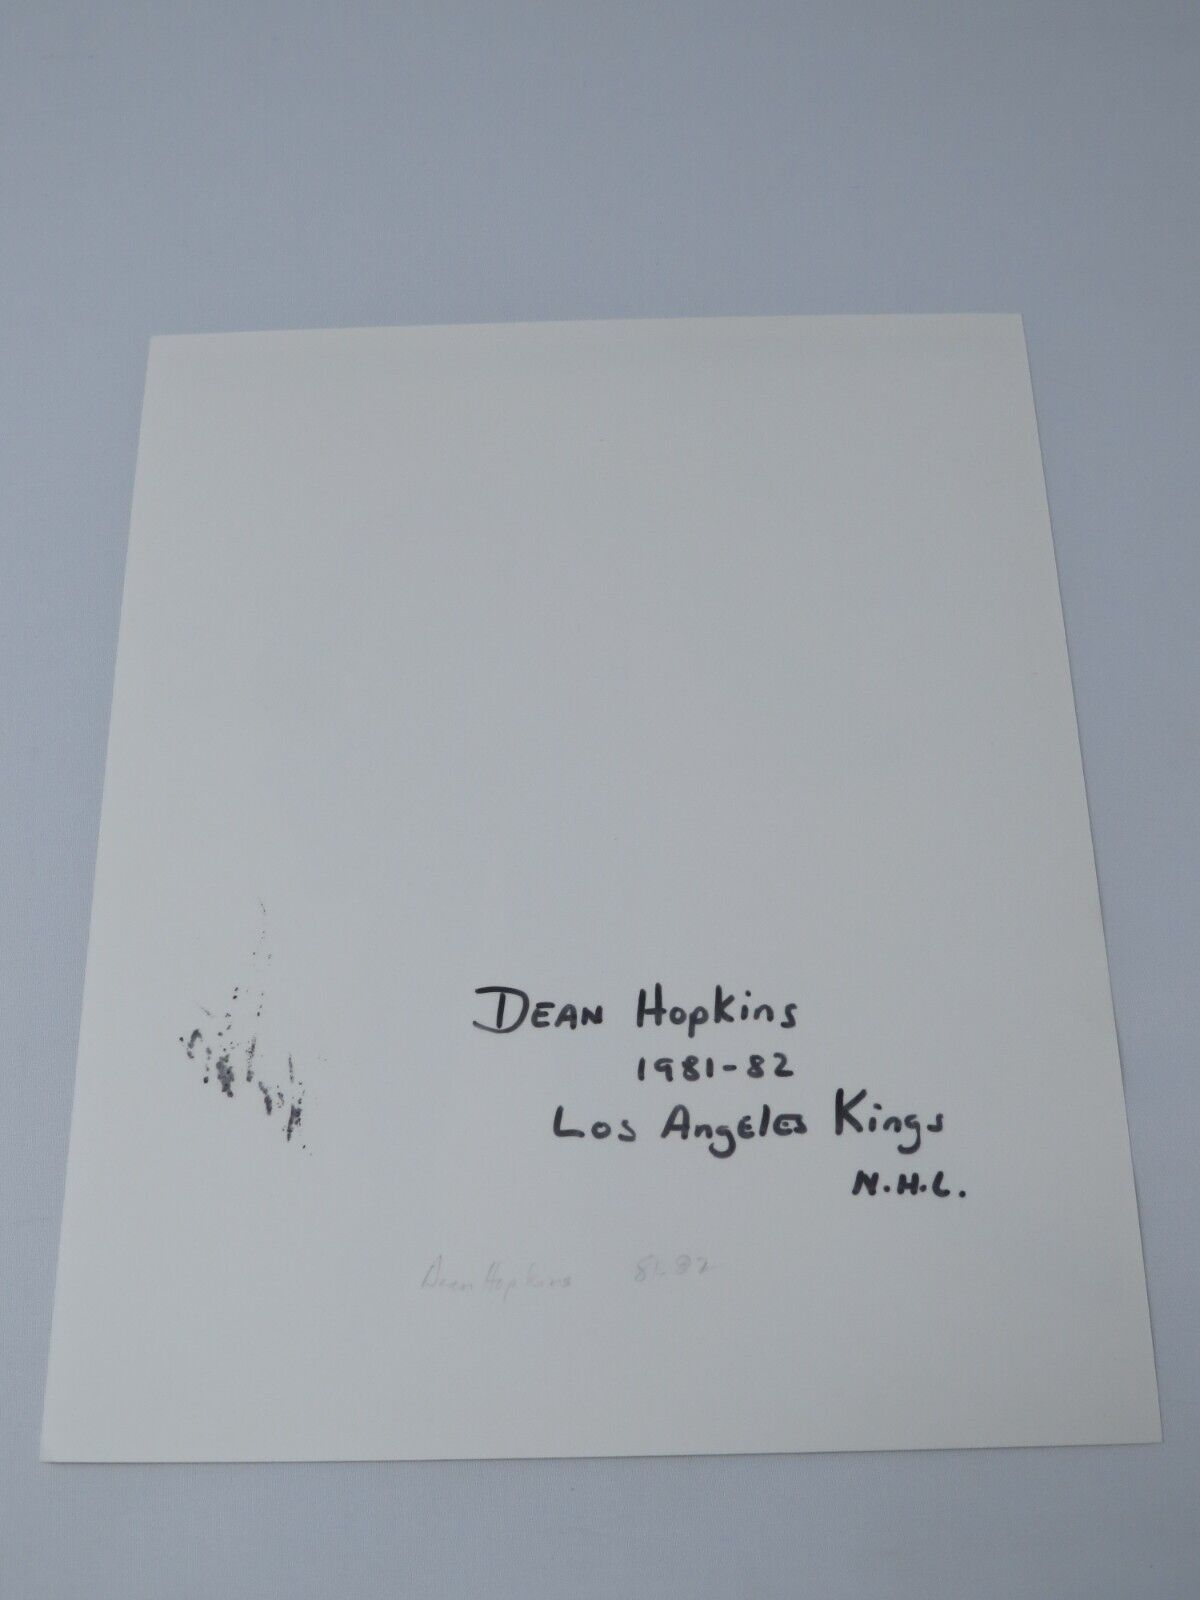 DEAN Hopkins
1981-82
Los Angeles Kings
N.H.L.
Dean Hopkins 81-82